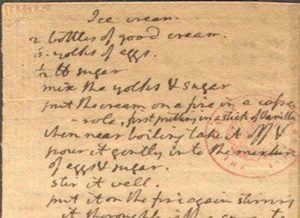 Ice cream.
2 bottles of good cream.
6. yolks of eggs.
1/2 lb sugar
mix the yolks & sugar
put the cream on a fire in a casse
-role, first putting in a stick of Vanilla.
when near boiling take it off &
pour it gently into the mixture
of eggs & sugar.
stir it well.
put it on the fire again stirring
it thoroughly with a